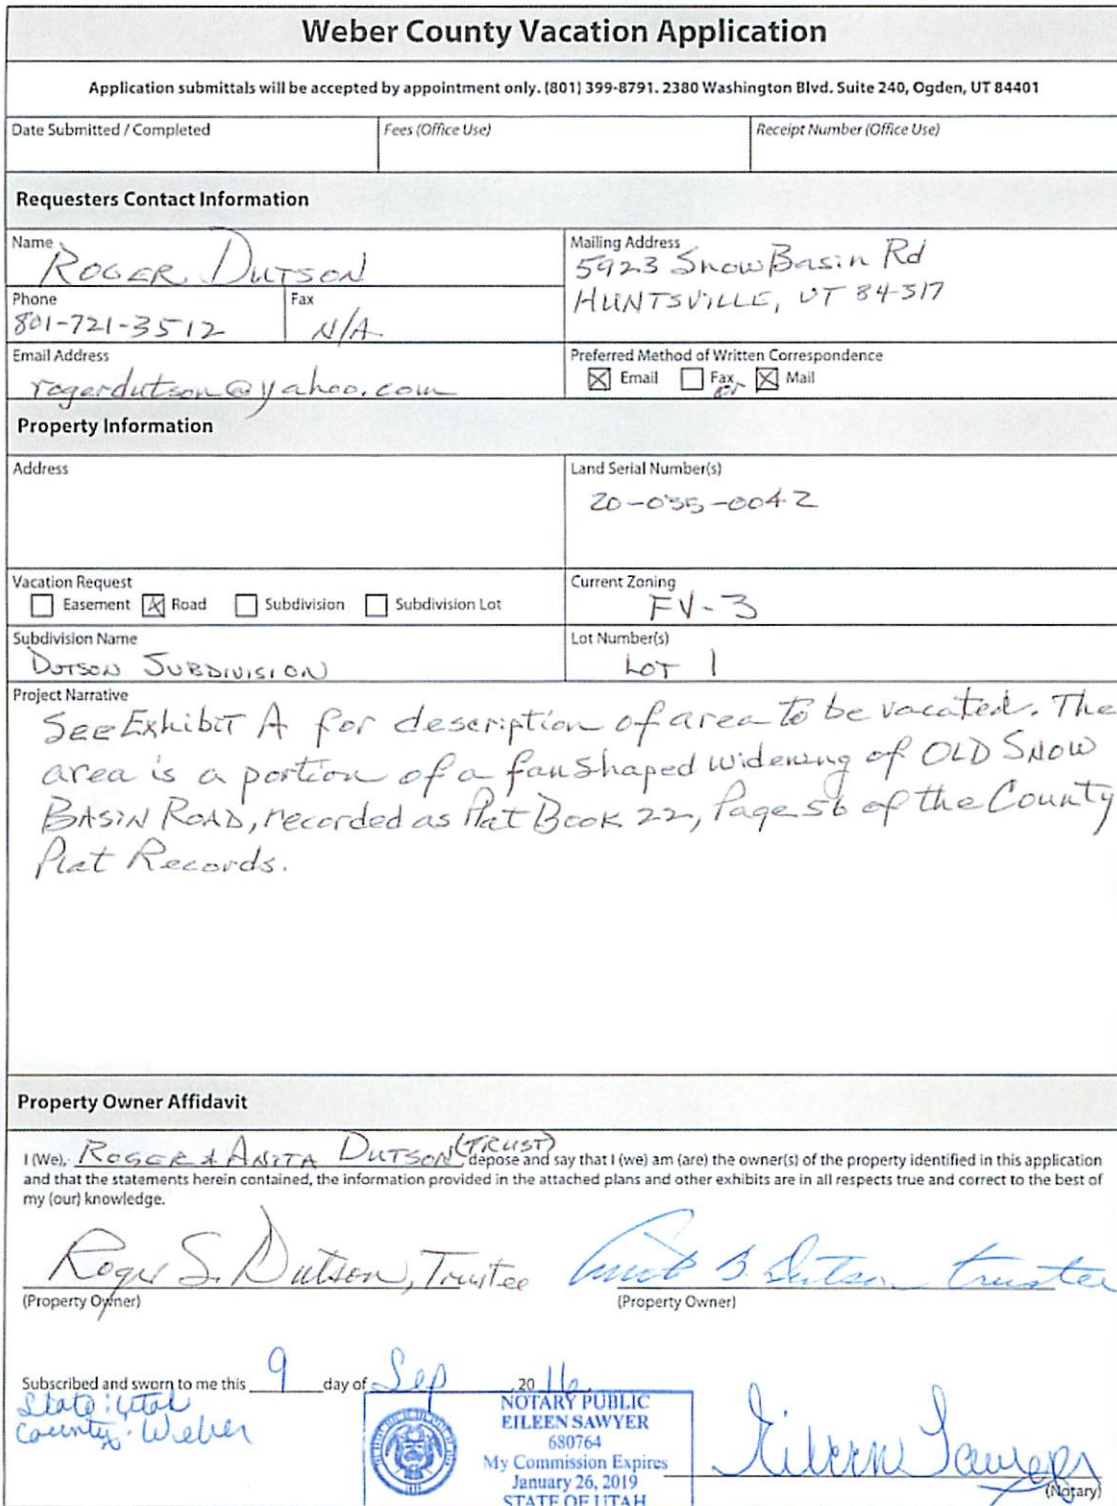 Weber County Vacation Application
Application submittals will be accepted by appointment only. (801) 399-8791. 2380 Washington Blvd. Suite 240, Ogden, UT 84401
Date Submitted / Completed
Fees (Office Use)
Receipt Number (Office Use)
Requesters Contact Information
Name
ROGER DUTSON
Mailing Address
5923 SnowBasin Rd
HUNTSVILLE, UT 84317
Phone
801-721-3512
Fax
N/A
Email Address
rogerdutson@yahoo.com
Preferred Method of Written Correspondence
Email Fax or Mail
Property Information
Address
Land Serial Number(s)
20-035-0042
Vacation Request
Easement Road Subdivision Subdivision Lot
Current Zoning
FV-3
Subdivision Name
DUTSON SUBDIVISION
Lot Number(s)
LOT 1
Project Narrative
SEE ExhibiT A for description of area to be vacated. The
area is a portion of a fan shaped widening of OLD SNOW
BASIN ROAD, recorded as Plat Book 22, Page 56 of the County
Plat Records.
Property Owner Affidavit
I (We), ROGER & ANITA DUTSON (TRUST), depose and say that I (we) am (are) the owner(s) of the property identified in this application
and that the statements herein contained, the information provided in the attached plans and other exhibits are in all respects true and correct to the best of
my (our) knowledge.
Roger S. Dutson, Trustee
B. Dutson trustee
(Property Owner)
(Property Owner)
Subscribed and sworn to me this 9 day of Sep, 20 16,
State: Utah
County: Weber
NOTARY PUBLIC
EILEEN SAWYER
680764
My Commission Expires
January 26, 2019
STATE OF UTAH
Eileen Sawyer
(Notary)